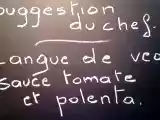 suggestion
du chef.
Langue de vea
sauce tomate
et polenta.